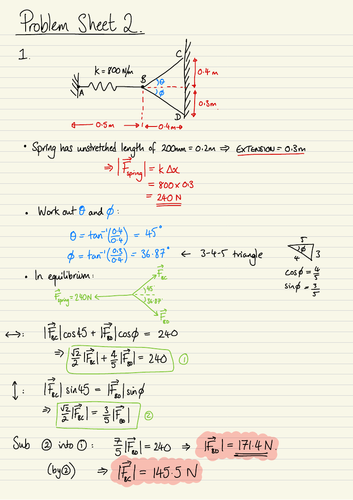 Problem Sheet 2.
1.
k = 800 N/m
C
0.4m
A
B
θ
ϕ
0.3m
D
0.5m
0.4m
• Spring has unstretched length of 200mm = 0.2m ⇒ EXTENSION = 0.3m
⇒ |F⃗spring| = k Δx
= 800 x 0.3
= 240 N
• Work out θ and ϕ :
θ = tan⁻¹(0.4/0.4) = 45°
ϕ = tan⁻¹(0.3/0.4) = 36.87° ← 3-4-5 triangle
5
ϕ
4
3
cosϕ = 4/5
sinϕ = 3/5
• In equilibrium:
F⃗BC
|F⃗spring| = 240N
45
36.87
F⃗BD
↔: |F⃗BC| cos45 + |F⃗BD| cosϕ = 240
⇒ √2/2 |F⃗BC| + 4/5 |F⃗BD| = 240 ①
↕: |F⃗BC| sin45 = |F⃗BD| sinϕ
⇒ √2/2 |F⃗BC| = 3/5 |F⃗BD| ②
Sub ② into ①: 7/5 |F⃗BD| = 240 ⇒ |F⃗BD| = 171.4 N
(by ②) ⇒ |F⃗BC| = 145.5 N